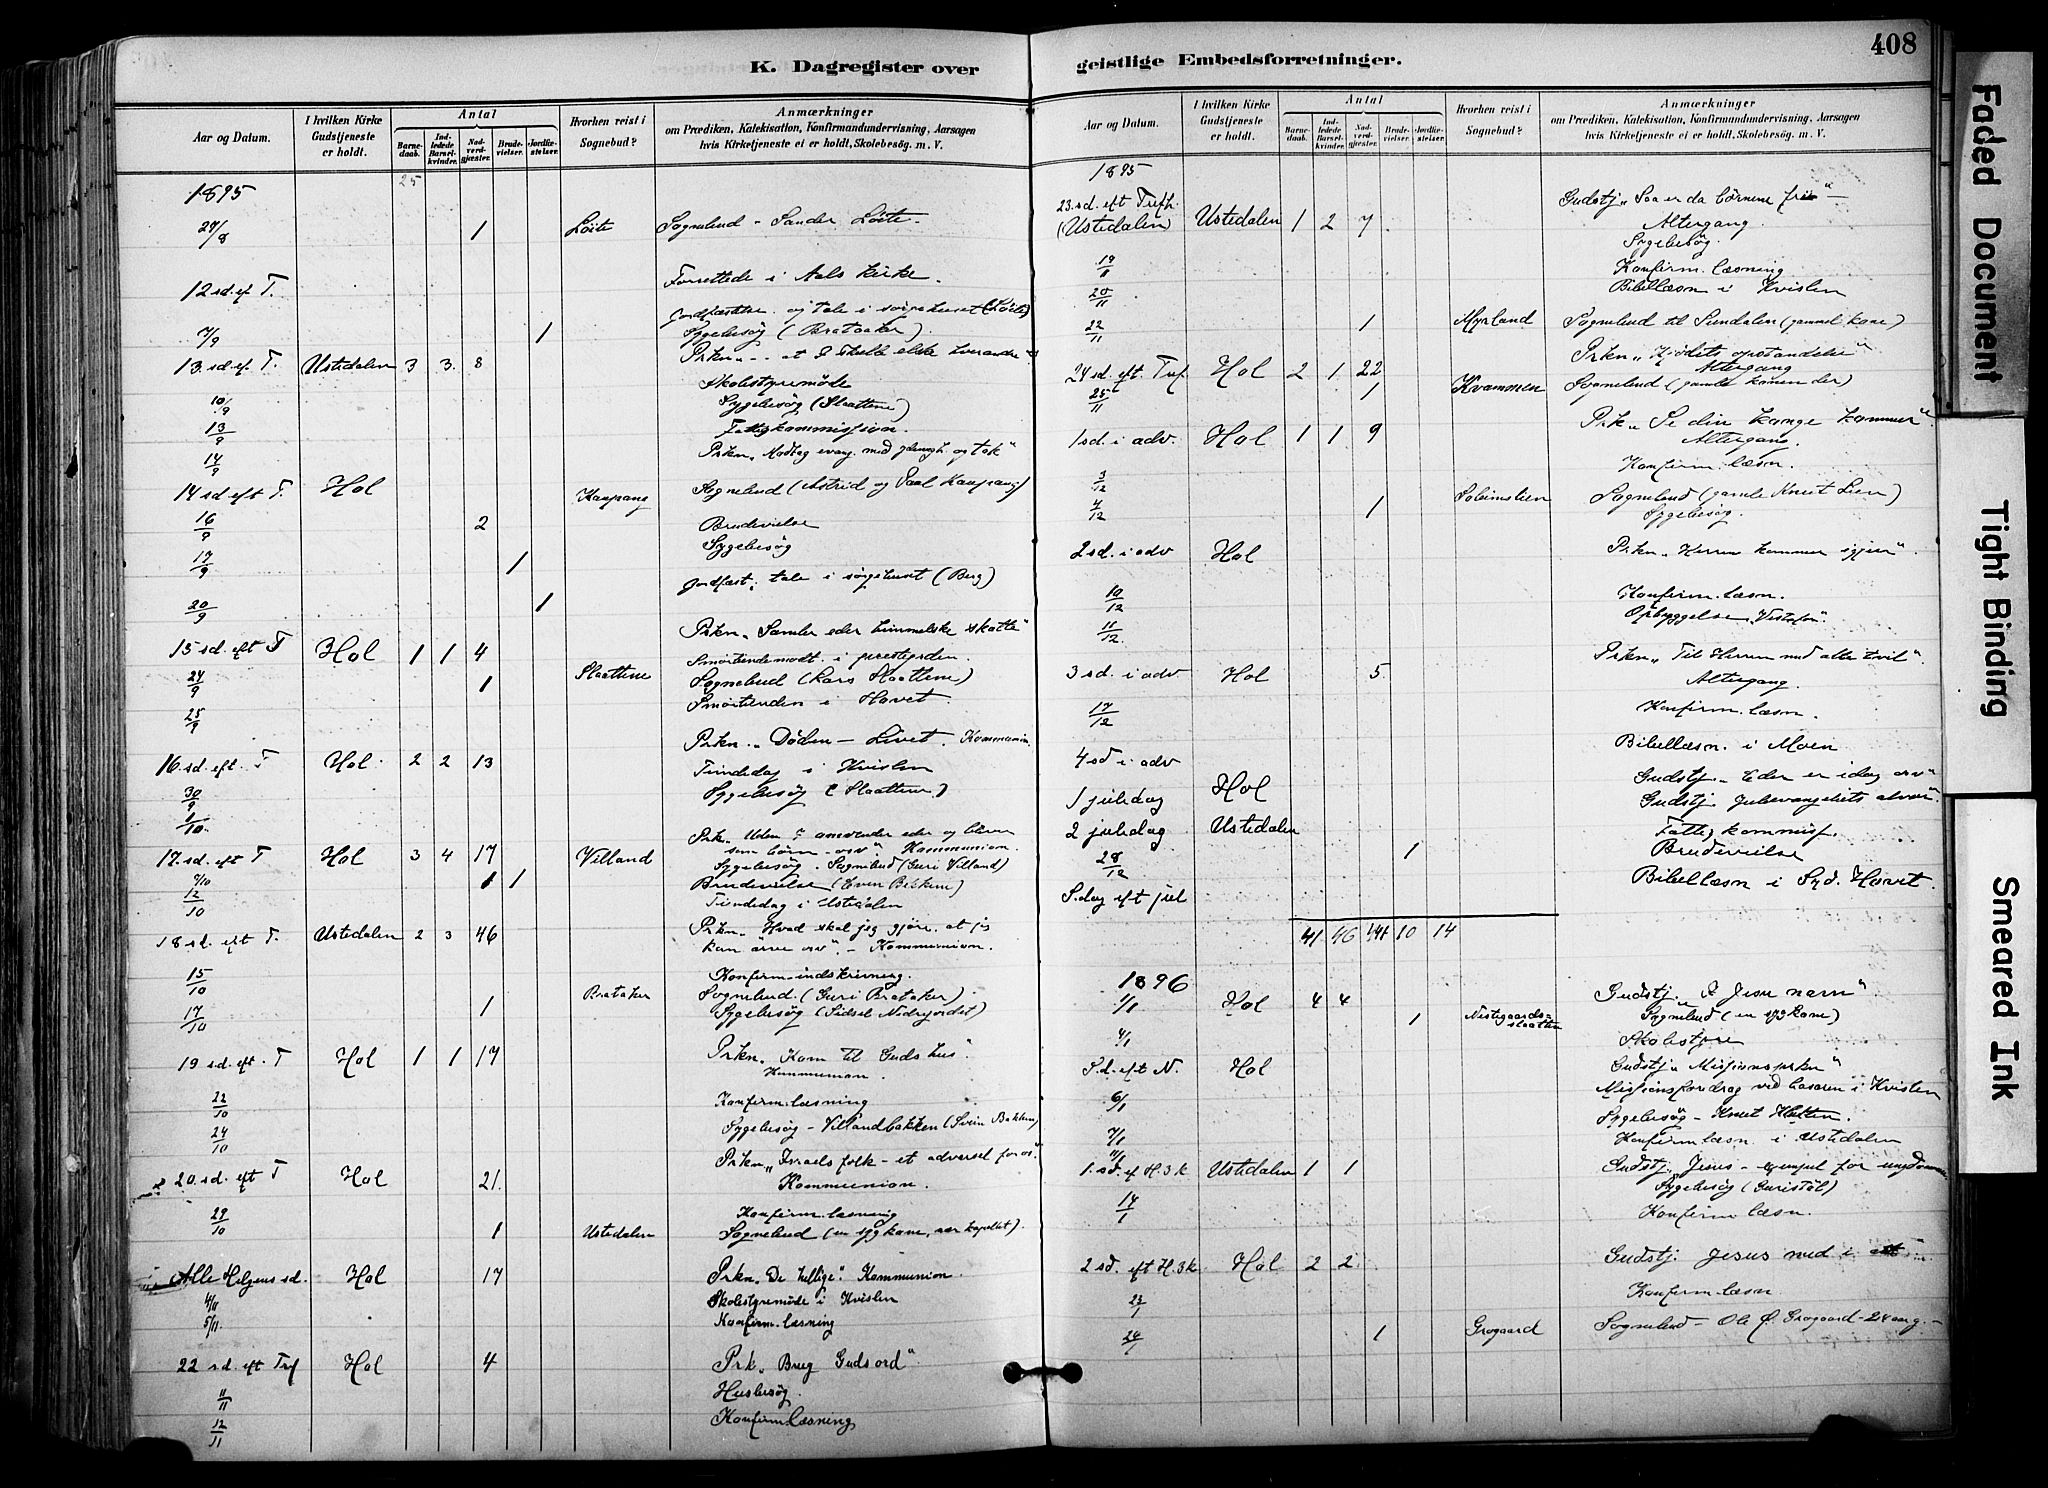 408
K. Dagregister over
geistlige Embedsforretninger.
Aar og Datum.
I hvilken Kirke Gudstjeneste er holdt.
Antal
Barne-daab.
Ind-ledede Barsel-kvinder.
Nad-verd-gjæster.
Brude-vielser.
Jordfæ-stelser.
Hvorhen reist i Sognebud?
Anmærkninger
om Prædiken, Katekisation, Konfirmandundervisning, Aarsagen
hvis Kirketjeneste ei er holdt, Skolebesøg. m. V.
25
1895
27/8 1 Löite Sognebud - Sander Löite.
12 sd. ef. T. Forrettede i Aals kirke.
7/9 1 og tale i sørgehuset (Löite)
Sygebesög (Brataaker).
13. sd. ef. T. Ustedalen 3 3. 8 Prkn. " - at I skulle elske hverandre"
Skolestyremöde
10/9 Sygebesög (Slaattene)
13/9 Fattigkommission.
14/9
14 sd eft T. Hol Prkn. "Modtag evang. med og tak"
16/9 2 Kaupang Sognebud (Astrid og Paal Kaupang)
17/9 1 Brudevielse
Sygebesög
20/9 1 Jordfæst; tale i sörgehuset (Berg)
15 sd. eft T Hol 1 1 4 Prkn. "Samler eder himmelske skatte"
Smörtiendemodt. i prestegrden.
24/9 1 Slaattene Sognebud (Lars Slaattene)
25/9 Smörtienden i Hovet.
16. sd. eft. T Hol. 2 2 13 Prkn. "Döden - Livet. Kommunion.
30/9 Tiendedag i Kvislen
1/10. Sygebesög (Slaattene)
17. sd. eft T Hol 3 4 17 Villand Prk. "Uden I omvender eder og bliver
som börn osv" Kommunion.
Sygebesög. Sognebud (Guri Villand)
9/10 1 1 Brudevielse (Even Bekkem)
12/10 Tiendedag i Ustedalen
18 sd. eft T. Ustedalen 2 3 46 Prkn. "Hvad skal jeg gjöre, at jeg
kan ärve osv" - Kommunion.
15/10 Konfirm-indskrivning.
17/10 1 Brataker Sognebud. (Guri Brataker)
Sygebesög (Sidsel Nidrejordet)
19 sd. eft. T Hol 1 1 17 Prkn. "Kom til Guds hus"
Kommunion.
22/10 Konfirm.læsning
24/10 Sygebesög - Villandbakken (Svein Bakken)
20. sd. eft T Hol 21. Prkn. "Israels folk - et advarsel for os"
Kommunion.
29/10 Konfirm.læsning
1 Ustedalen Sognebud (en syg kone, nær kapellet).
Alle Helgens sd. Hol 17 Prkn. "De hellige". Kommunion.
4/11 Skolestyremöde i Kvislen
5/11 Konfirm.læsning
22 sd. eft Tref Hol 4 Prk "Brug Guds ord".
11/11 Husbesög.
12/11 Konfirm.læsning
Aar og Datum.
I hvilken Kirke Gudstjeneste er holdt.
Antal
Barne-daab.
Ind-ledede Barsel-kvinder.
Nad-verd-gjæster.
Brude-vielser.
Jordfæ-stelser.
Hvorhen reist i Sognebud?
Anmærkninger
om Prædiken, Katekisation, Konfirmandundervisning, Aarsagen
hvis Kirketjeneste ei er holdt, Skolebesög. m. V.
1895
23. sd. eft Trefh. (Ustedalen) Ustedalen 1 2 7. Gudstj. "Saa er da börnene frie" -
Altergang.
Sygebesög.
19/11 Konfirm. læsning
20/11 Bibellæsn i Kvislen
22/11 1 Myrland Sognebud til Sundalen (gammel kone)
24 sd. eft. Tref. Hol 2 1 22 Prkn "Kjödets opstandelse"
Altergang
25/11 1 Kvammen Sognebud (gamle konen der)
1 sd. i adv. Hol 1 1 9 Prk. "Se din konge kommer".
Altergang.
3/12 Konfirm. læsn.
4/12 1 Soleimslien Sognebud (gamle Knut Lien)
Sygebesög.
2 sd. i adv Hol Prkn "Herren kommer igjen".
10/12 Konfirm.læsn.
11/12. Opbyggelse
3 sd. i adv Hol 5. Prkn "Til Herren med alle tvil"
Altergang.
17/12 Konfirm.læsn.
Bibellæsn. i Moen
4 sd i adv Hol Gudstj. "Eder er idag osv"
1 juledag Gudstj. Juleevangeliets alvor".
2 juledag Ustedalen Fattigkommiss.
28/12 1 Brudevielse
S.dag eft jul Bibellæsn i Syd. Hovet.
41 46 10 14
1896
1/1 Hol 4 4 Gudstj. "I Jesu navn".
1 Nestegaards-slaatten Sognebud (en syg kone)
4/1 Skolestyre
S.d. eft N. Hol Gudstj "Missionsprkn"
6/1 Missionsforedrag ved basaren i Kvislen
7/1 Sygebesög - Knut
11/1 Konfirm læsn. i Ustedalen
1. sd. ef H.3k Ustedalen 1 1 Gudstj. "Jesus - exempel for ungdommen
Sygebesög (Guristöl)
14/1 Konfirm læsn.
2 sd. eft H.3k Hol 2 2. Gudstj. Jesus med i alt
23/1 Konfirm læsn
24/1 1 Grogaard Sognebud - Ole Ø. Grogaard - 24 aarg. -
Faded Document
Tight Binding
Smeared Ink